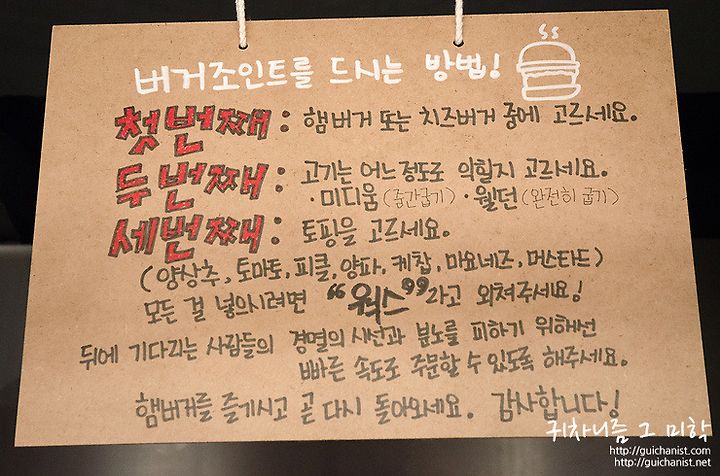 버거조인트를 드시는 방법!
첫번째 : 햄버거 또는 치즈버거 중에 고르세요.
두번째 : 고기는 어느정도로 익힐지 고르세요.
·미디움 (중간굽기) ·웰던 (완전히 굽기)
세번째 : 토핑을 고르세요.
(양상추, 토마토, 피클, 양파, 케찹, 마요네즈, 머스타드)
모든 걸 넣으시려면 “웍스”라고 외쳐주세요!
뒤에 기다리는 사람들의 경멸의 시선과 분노를 피하기 위해선
빠른 속도로 주문할 수 있도록 해주세요.
햄버거를 즐기시고 곧 다시 돌아오세요. 감사합니다!
귀차니즘 그 미학
http://guichanist.com
http://guichanist.net